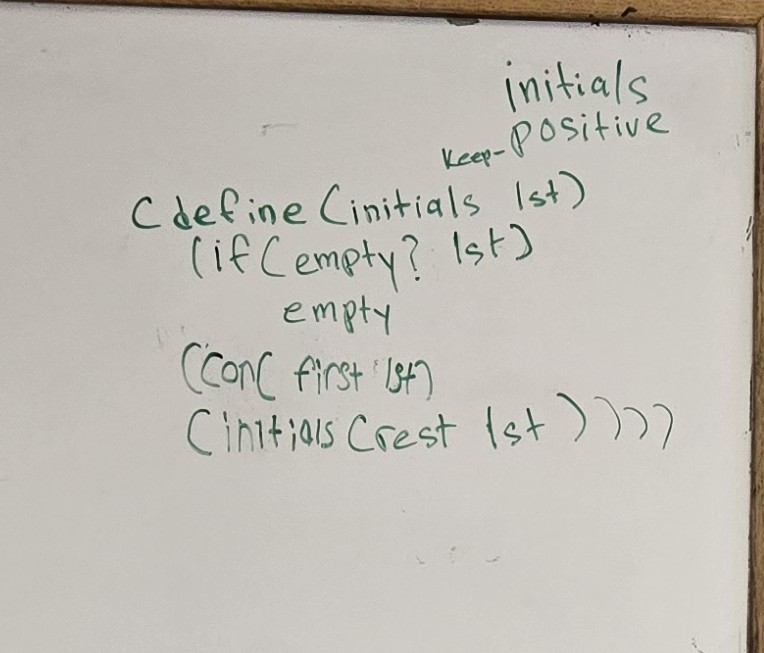 initials
keep-positive
(define (initials lst)
(if (empty? lst)
empty
(con( first lst)
(initials (rest lst))))